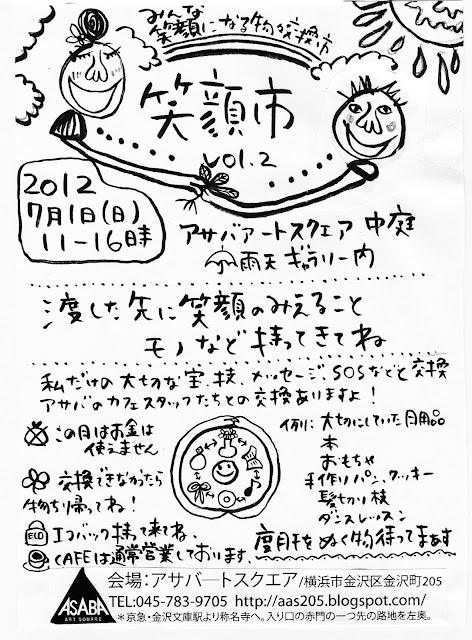 みんな
笑顔になる物々交換市
笑顔市
vol.2
2012
7月1日(日)
11-16時
アサバアートスクエア 中庭
雨天 ギャラリー内
渡した先に笑顔のみえること
モノなど持ってきてね
私だけの大切な宝、技、メッセージ、SOSなどと交換
アサバのカフェスタッフたちとの交換ありますよ!
この日はお金は
使えません
交換できなかったら
物もち帰ってね!
ECO エコバック持って来てね、
CAFEは通常営業しております、
例: 大切にしていた日用品
本
おもちゃ
手作りパン、クッキー
髪切り技
ダンスレッスン
度肝をぬく物待ってまぁす
ASABA
ART SQUARE
会場:アサバートスクエア/横浜市金沢区金沢町205
TEL:045-783-9705 http://aas205.blogspot.com/
*京急・金沢文庫駅より称名寺へ。入り口の赤門の一つ先の路地を左奥。